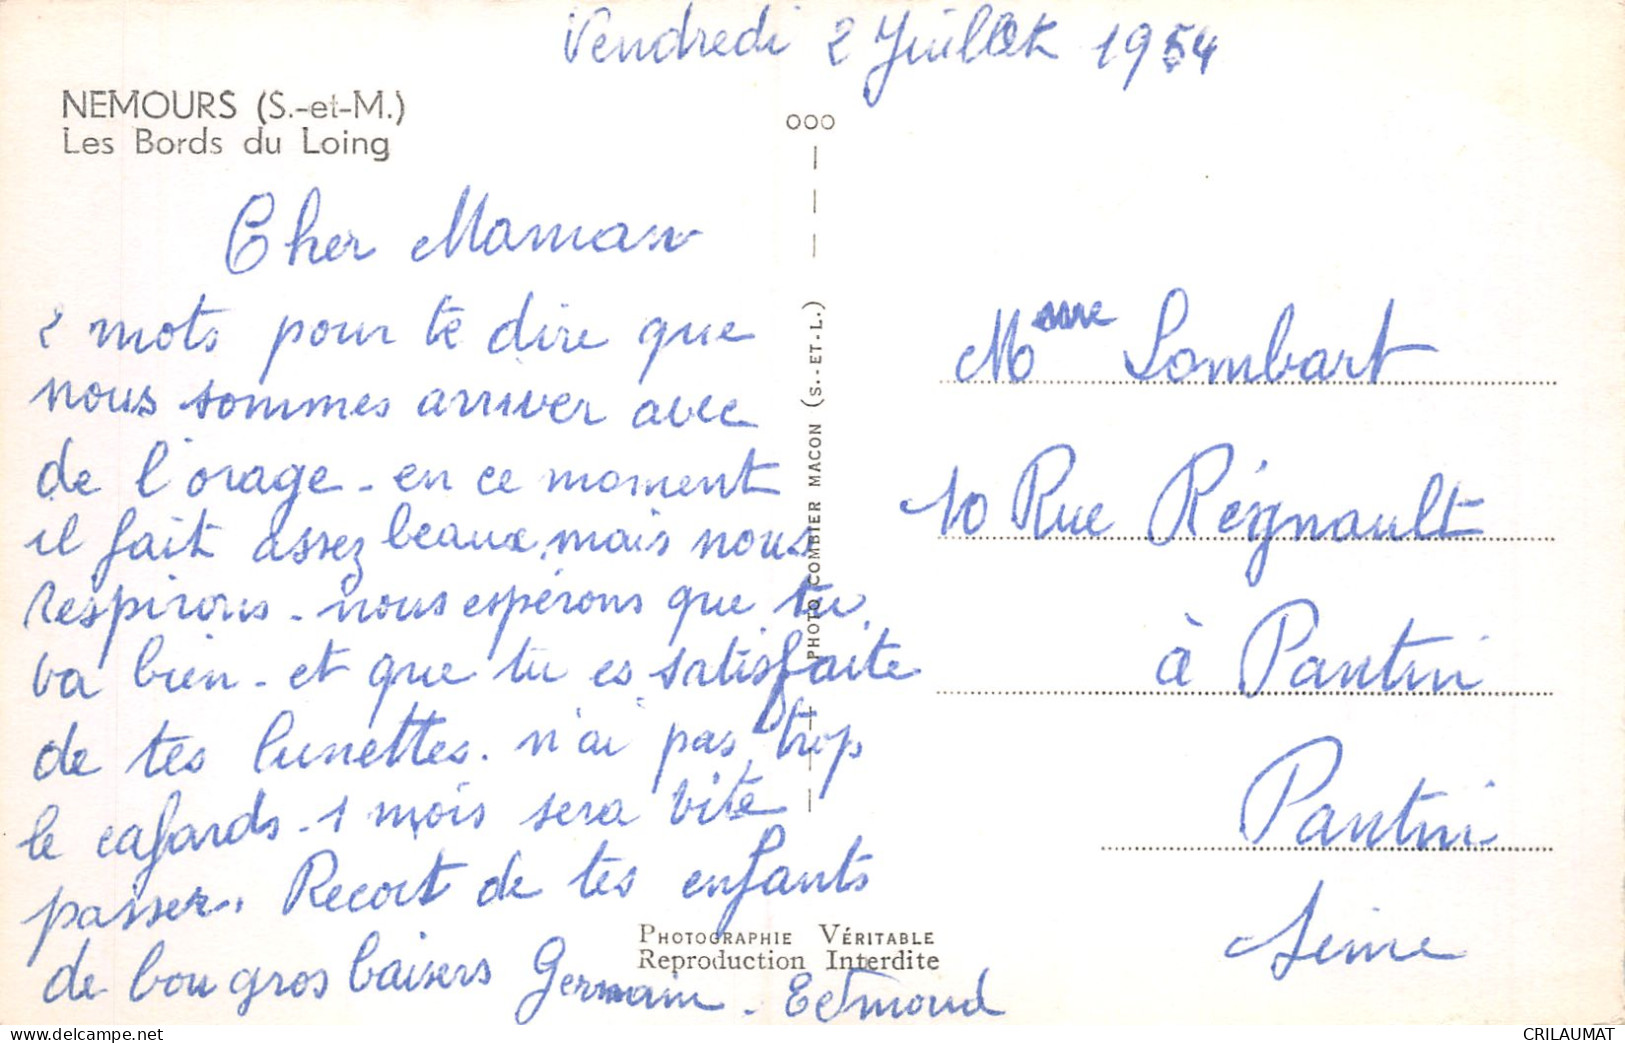 Vendredi 2 Juillet 1954
NEMOURS (S.-et-M.)
Les Bords du Loing
Cher Maman
2 mots pour te dire que
nous sommes arriver avec
de l'orage - en ce moment
il fait assez beaux, mais nous
respirons - nous espérons que tu
va bien - et que tu es satisfaite
de tes lunettes. n'ai pas trop
le cafards - 1 mois sera vite
passer. Recoit de tes enfants
de bou gros baisers Germain - Edmond
PHOTOGRAPHIE VÉRITABLE
Reproduction Interdite
OOO
PHOTO COMBIER MACON (S.-ET-L.)
Mme Lombart
10 Rue Régnault
à Pantin
Pantin
Seine
CRILAUMAT